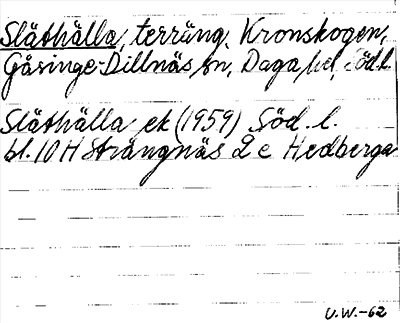 Släthälla, terräng, Kronskogen,
Gåsinge-Dillnäs sn, Daga hd, Södl.
Släthälla ek (1959) Söd. l.
bl. 10 H Strängnäs 2 c Hedberga
U.W.-62